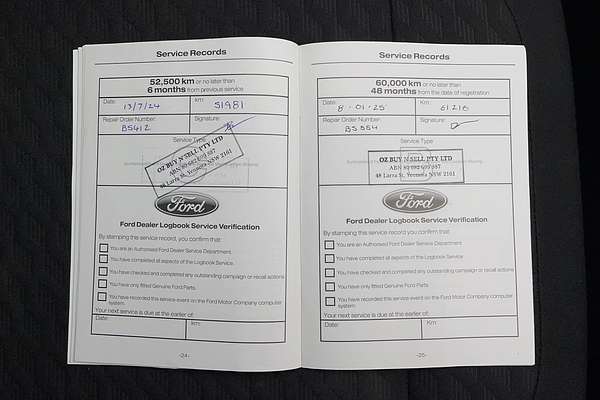 Service Records
52,500 km or no later than
6 months from previous service
Date: 13/7/24 km: 51981
Repair Order Number: Signature:
BS412
Service Type
OZ BUY N SELL PTY LTD
48 Larra St, Yennora NSW 2161
Ford
Ford Dealer Logbook Service Verification
By stamping this service record, you confirm that:
You are an Authorised Ford Dealer Service Department.
You have completed all aspects of the Logbook Service.
You have checked and completed any outstanding campaign or recall actions
You have only fitted Genuine Ford Parts.
You have recorded this service event on the Ford Motor Company computer
system.
Your next service is due at the earlier of:
Date: km:
-24-
Service Records
60,000 km or no later than
48 months from the date of registration
Date: 8-01-25 km: 61218
Repair Order Number: Signature:
BS554
Service Type
OZ BUY N SELL PTY LTD
48 Larra St, Yennora NSW 2161
Ford
Ford Dealer Logbook Service Verification
By stamping this service record, you confirm that:
You are an Authorised Ford Dealer Service Department.
You have completed all aspects of the Logbook Service
You have checked and completed any outstanding campaign or recall actions
You have only fitted Genuine Ford Parts.
You have recorded this service event on the Ford Motor Company computer
system.
Your next service is due at the earlier of:
Date: Km
-25-